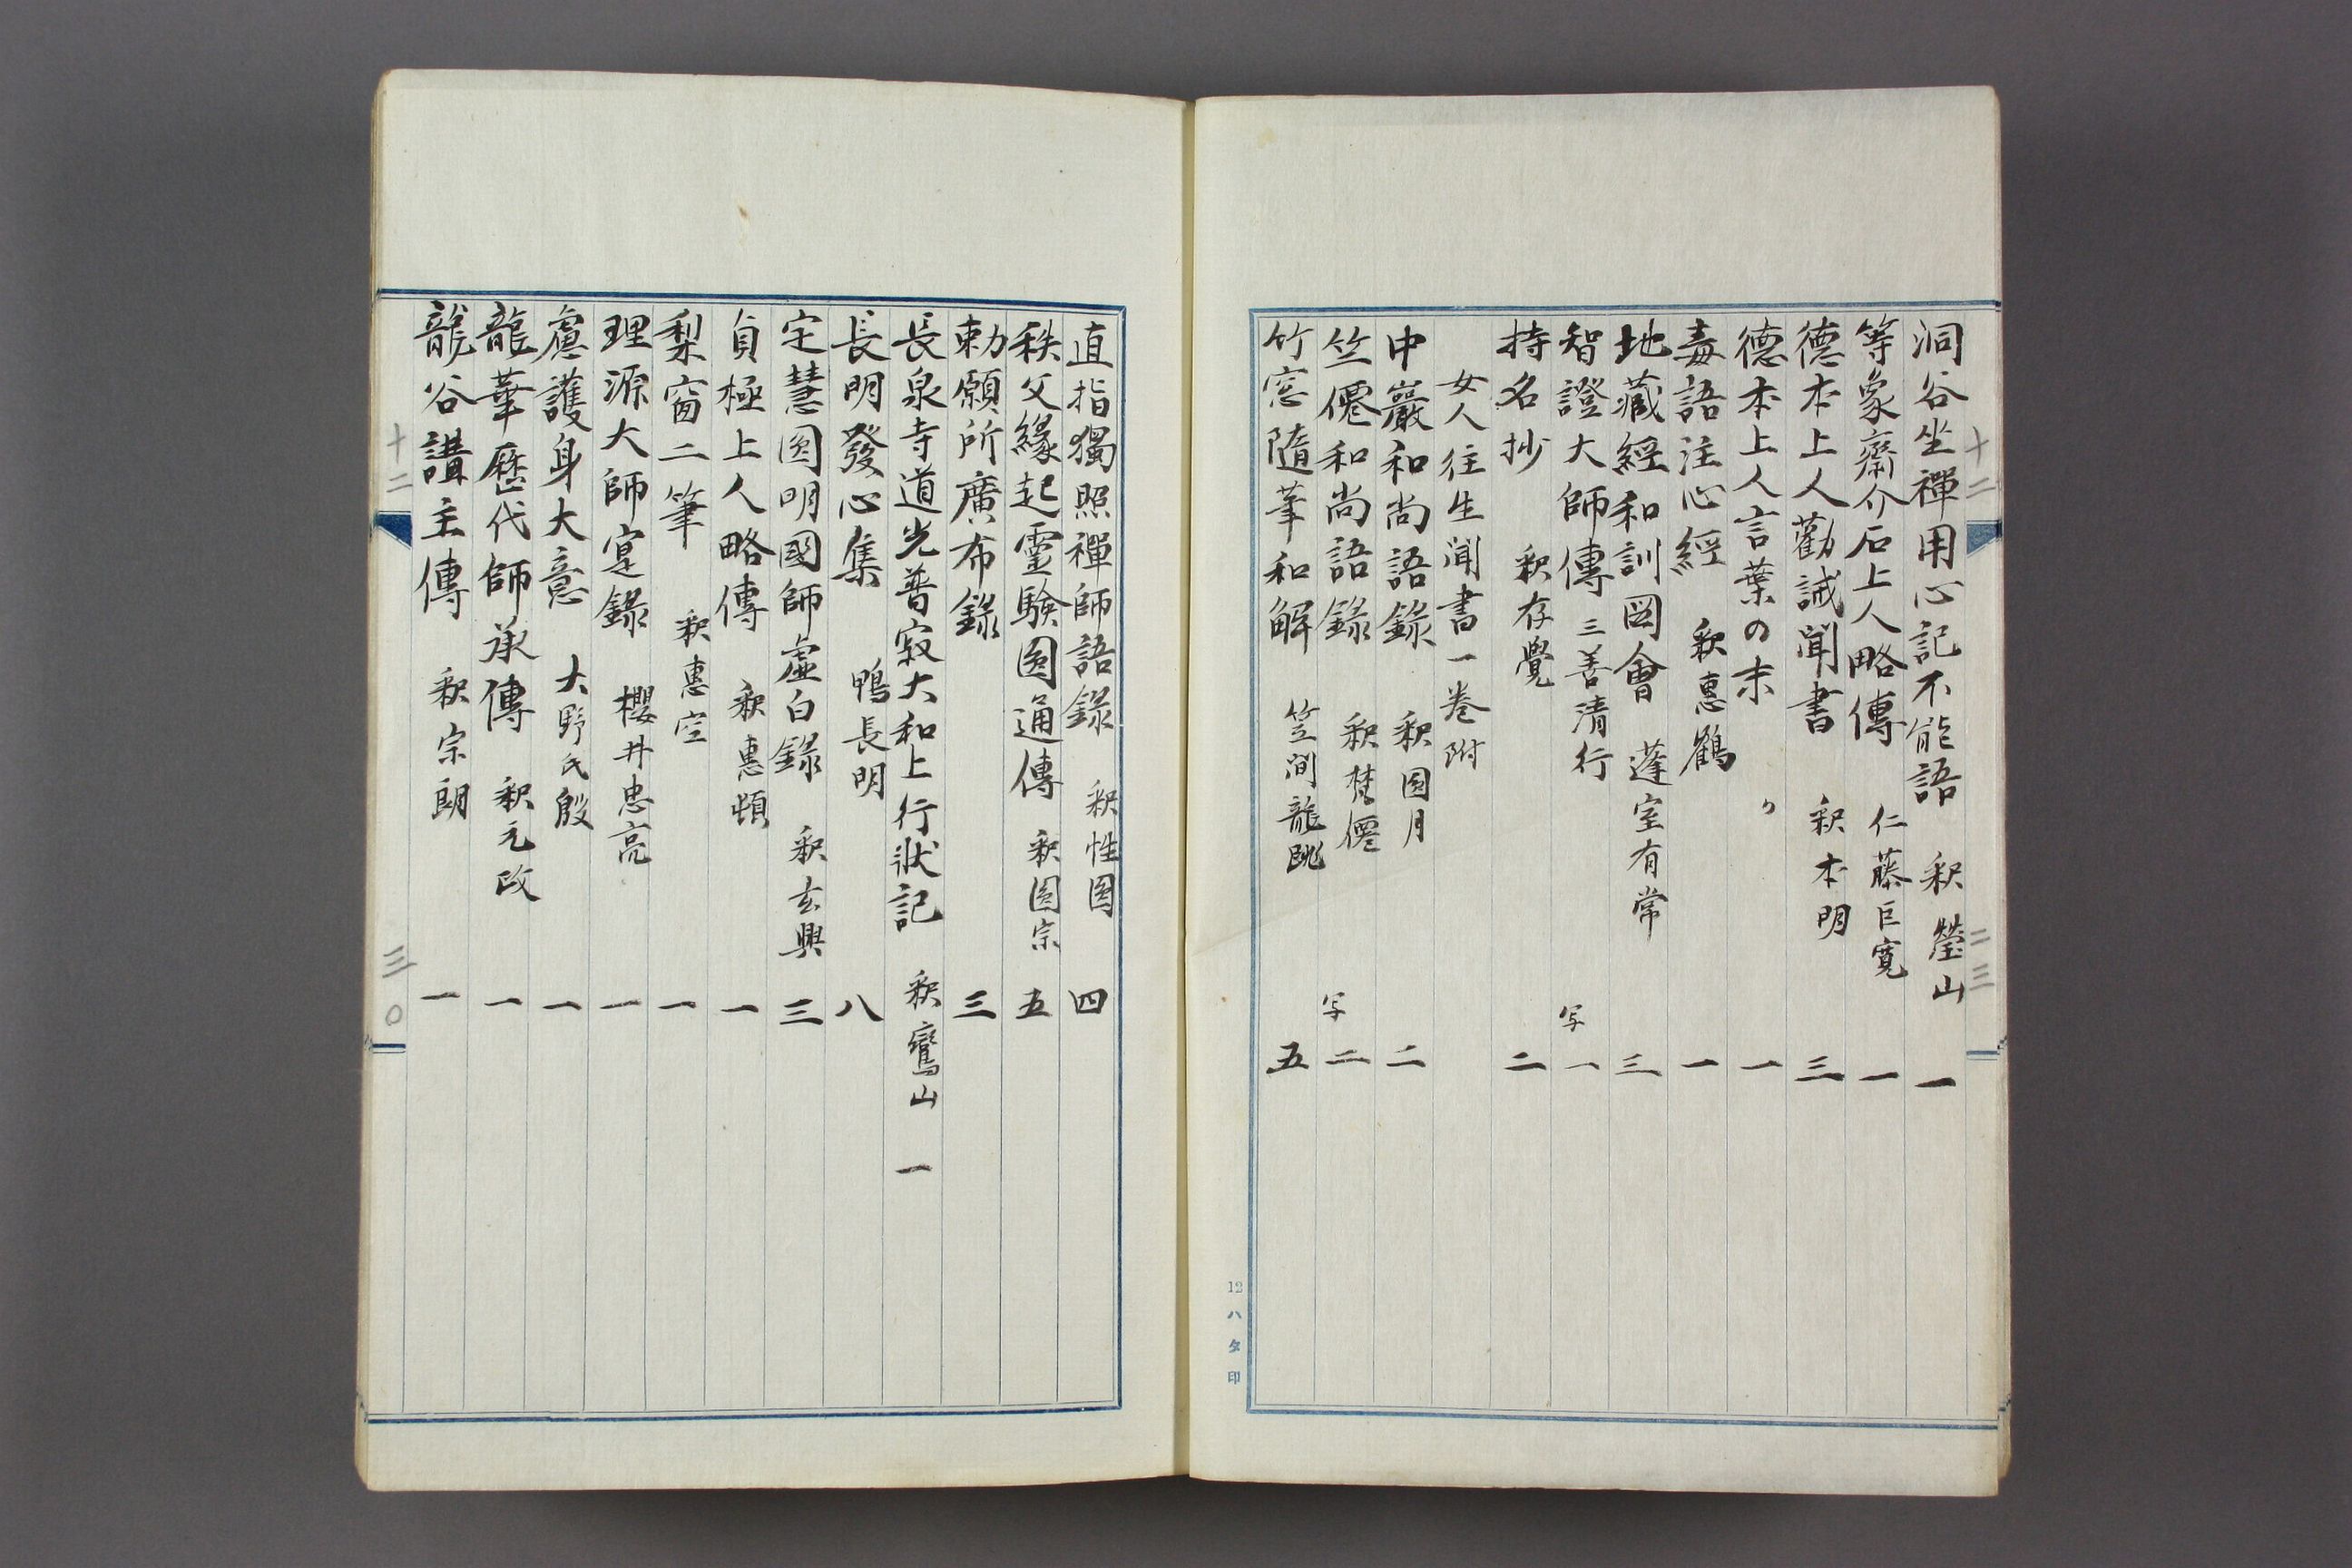 十二
二三
洞谷坐禪用心記不能語 釈瑩山 一
等象齋介石上人略傳 仁藤巨寛 一
德本上人勸誡聞書 釈本明 三
德本上人言葉の末 〃 一
毒語注心經 釈惠鶴 一
地藏經和訓図會 蓬室有常 三
智證大師傳 三善清行 写 一
持名抄 釈存覺 二
女人往生聞書一卷附
中巖和尚語錄 釈圓月 二
竺僊和尚語錄 釈梵僊 写 二
竹窓隨筆和解 笠間龍跳 五
12ハタ印
直指獨照禪師語錄 釈性圓 四
秩父緣起靈驗圓通傳 釈圓宗 五
勅願所廣布錄 三
長泉寺道光普寂大和上行狀記 釈鸞山 一
長明發心集 鴨長明 八
定慧圓明國師虛白錄 釈玄興 三
貞極上人略傳 釈惠頓 一
梨窗二筆 釈惠空 一
理源大師寔錄 櫻井忠亮 一
慮護身大意 大野氏殷 一
龍華歷代師承傳 釈元政 一
龍谷講主傳 釈宗朗 一
十二
三〇